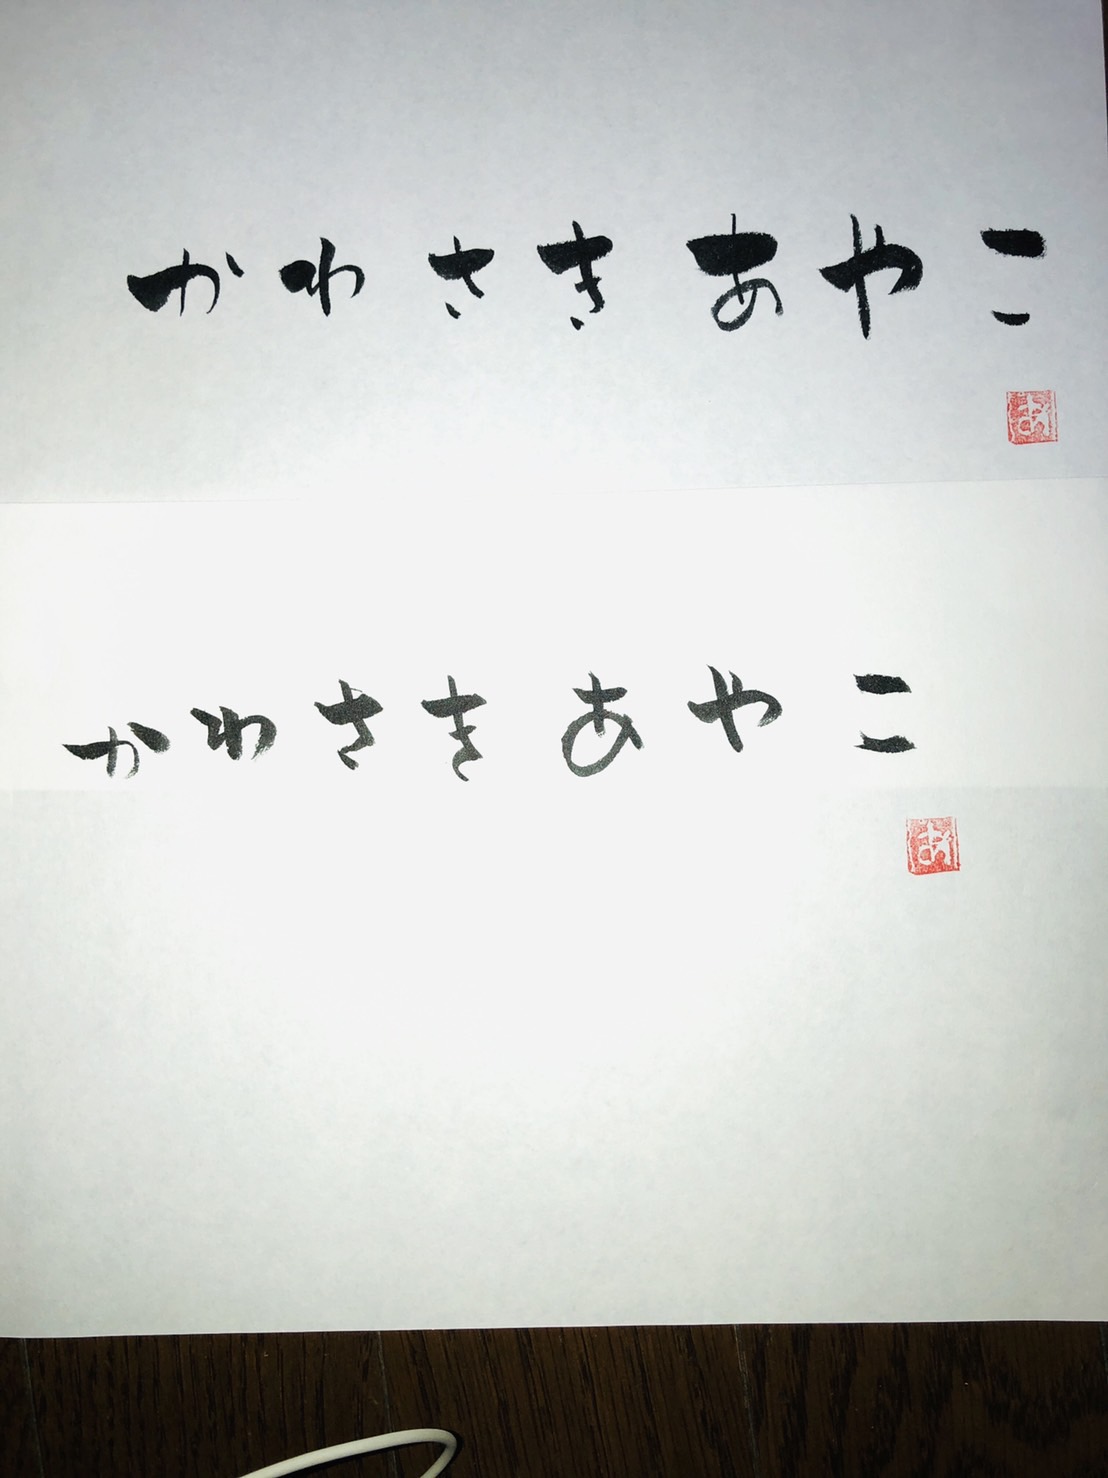 かわさき あやこ
あ
かわさき あやこ
あ